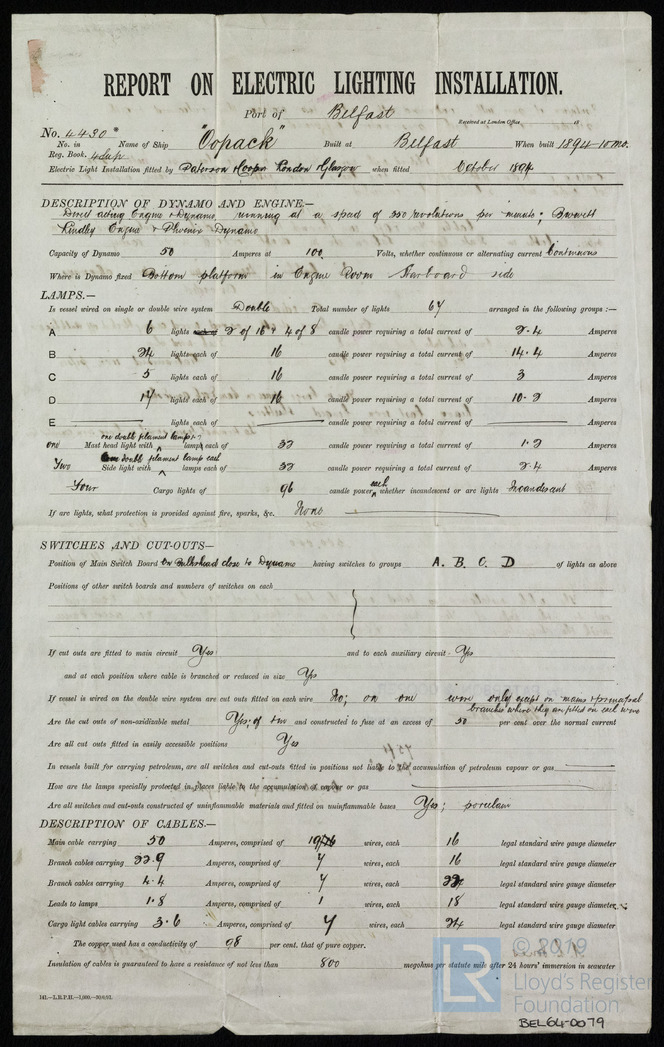 REPORT ON ELECTRIC LIGHTING INSTALLATION.
Port of Belfast Received at London Office 18
No. 4430
No. in Reg. Book. 4 Sup Name of Ship "Oopack" Built at Belfast When built 1894-10mo.
Electric Light Installation fitted by Paterson & Cooper London & Glasgow when fitted October 1894
DESCRIPTION OF DYNAMO AND ENGINE—
Direct acting Engine & Dynamo, running at a speed of 350 revolutions per minute;
Lindley Engine & Phoenix Dynamo
Capacity of Dynamo 50 Amperes at 100 Volts, whether continuous or alternating current Continuous
Where is Dynamo fixed Bottom platform in Engine Room Starboard side
LAMPS.—
Is vessel wired on single or double wire system Double Total number of lights 67 arranged in the following groups :—
A 6 lights 2 of 16 & 4 of 8 candle power requiring a total current of 2.4 Amperes
B 24 lights each of 16 candle power requiring a total current of 14.4 Amperes
C 5 lights each of 16 candle power requiring a total current of 3 Amperes
D 17 lights each of 16 candle power requiring a total current of 10.2 Amperes
E lights each of candle power requiring a total current of Amperes
one Mast head light with one double filament lamps each of 32 candle power requiring a total current of 1.2 Amperes
Two Side light with one double filament lamp each lamps each of 32 candle power requiring a total current of 2.4 Amperes
Four Cargo lights of 96 candle power each whether incandescent or arc lights Incandescent
If arc lights, what protection is provided against fire, sparks, &c. None
SWITCHES AND CUT-OUTS—
Position of Main Switch Board on Bulkhead close to Dynamo having switches to groups A. B. C. D of lights as above
Positions of other switch boards and numbers of switches on each
If cut outs are fitted to main circuit Yes and to each auxiliary circuit Yes
and at each position where cable is branched or reduced in size Yes
If vessel is wired on the double wire system are cut outs fitted on each wire No; on one wire only except on mains & principal
branches where they are fitted on each wire
Are the cut outs of non-oxidizable metal Yes; of tin and constructed to fuse at an excess of 50 per cent over the normal current
Are all cut outs fitted in easily accessible positions Yes
In vessels built for carrying petroleum, are all switches and cut-outs fitted in positions not liable to the accumulation of petroleum vapour or gas
How are the lamps specially protected in places liable to the accumulation of vapour or gas
Are all switches and cut-outs constructed of uninflammable materials and fitted on uninflammable bases Yes; porcelain
DESCRIPTION OF CABLES.—
Main cable carrying 50 Amperes, comprised of 19 wires, each 16 legal standard wire gauge diameter
Branch cables carrying 22.9 Amperes, comprised of 7 wires, each 16 legal standard wire gauge diameter
Branch cables carrying 4.4 Amperes, comprised of 7 wires, each legal standard wire gauge diameter
Leads to lamps 1.8 Amperes, comprised of 1 wires, each 18 legal standard wire gauge diameter
Cargo light cables carrying 3.6 Amperes, comprised of 7 wires, each 24 legal standard wire gauge diameter
The copper used has a conductivity of 98 per cent. that of pure copper.
Insulation of cables is guaranteed to have a resistance of not less than 800 megohms per statute mile after 24 hours' immersion in seawater
© 2019
LR Lloyd's Register
Foundation
BEL64-0079